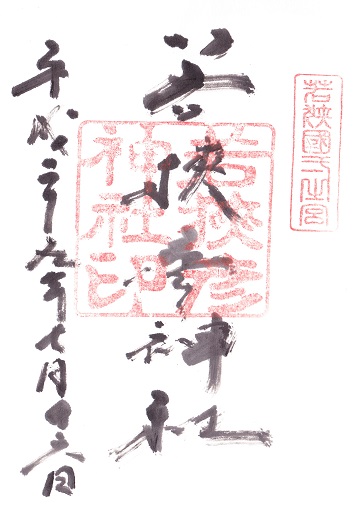 若狹國一之宮
若狭彦神社
若狭彦
神社印
平成二十九年七月十六日